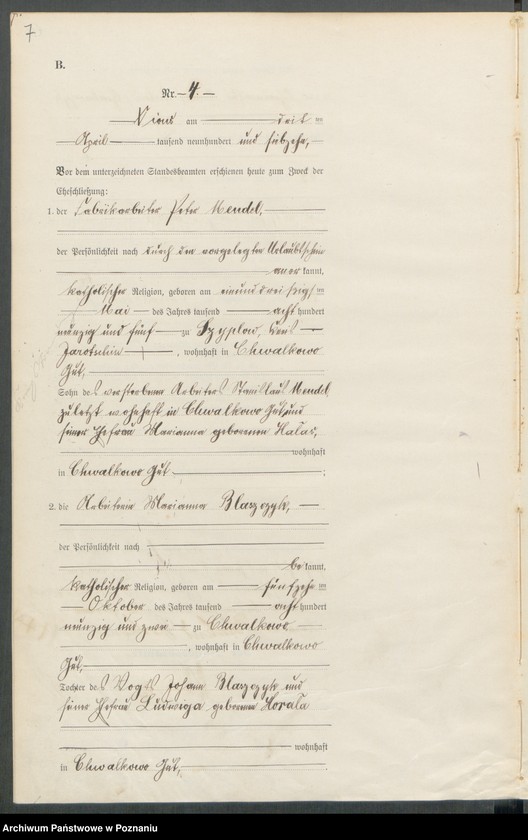 7
B.
Nr. 4.
am
April tausend neunhundert und siebzehn,
Vor dem unterzeichneten Standesbeamten erschienen heute zum Zweck der
Eheschließung:
1. der Fabrikarbeiter Peter Mendel,
der Persönlichkeit nach durch den vorgelegten Urlaubsschein
anerkannt,
katholischer Religion, geboren am einunddreißigsten
Mai des Jahres tausend achthundert
neunzig und fünf zu Szyplow, Kreis
Jarotschin, wohnhaft in Chwalkowo
Gut,
Sohn des verstorbenen Arbeiters Stanislaus Mendel,
zuletzt wohnhaft in Chwalkowo Gut, und
seiner Ehefrau Marianna geborenen Halas,
wohnhaft
in Chwalkowo Gut;
2. die Arbeiterin Marianna Blaszczyk,
der Persönlichkeit nach
bekannt,
katholischer Religion, geboren am fünfzehnten
Oktober des Jahres tausend achthundert
neunzig und zwei zu Chwalkowo
, wohnhaft in Chwalkowo
Gut,
Tochter des Vogts Johann Blaszczyk und
seiner Ehefrau Ludwiga geborenen
wohnhaft
in Chwalkowo Gut,
Archiwum Państwowe w Poznaniu